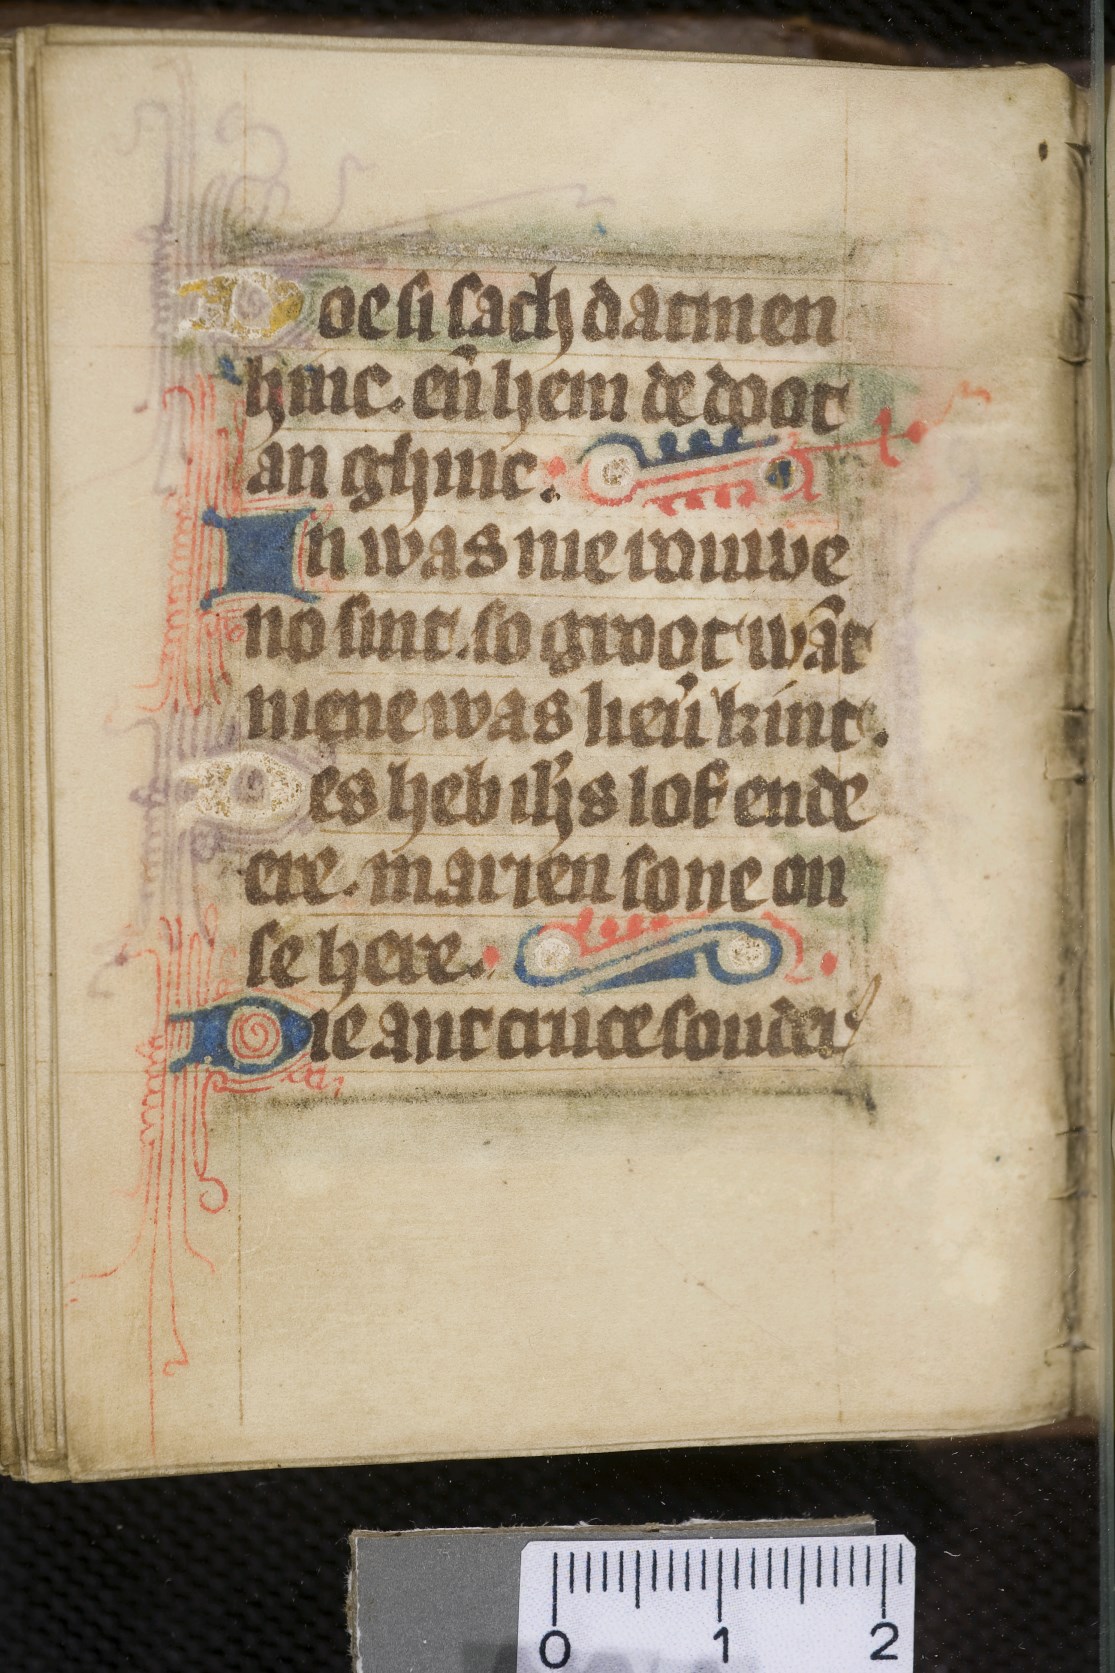 Doe si sach datmen
hinc. eñ hem de doot
an ghinc:
In was nie wiuwe
no sint. so groot wāt
niene was heur̄ kint.
Des heb ih̄s lof ende
ere. marien sone on
se here.
Die ant cruce sonder
0 1 2